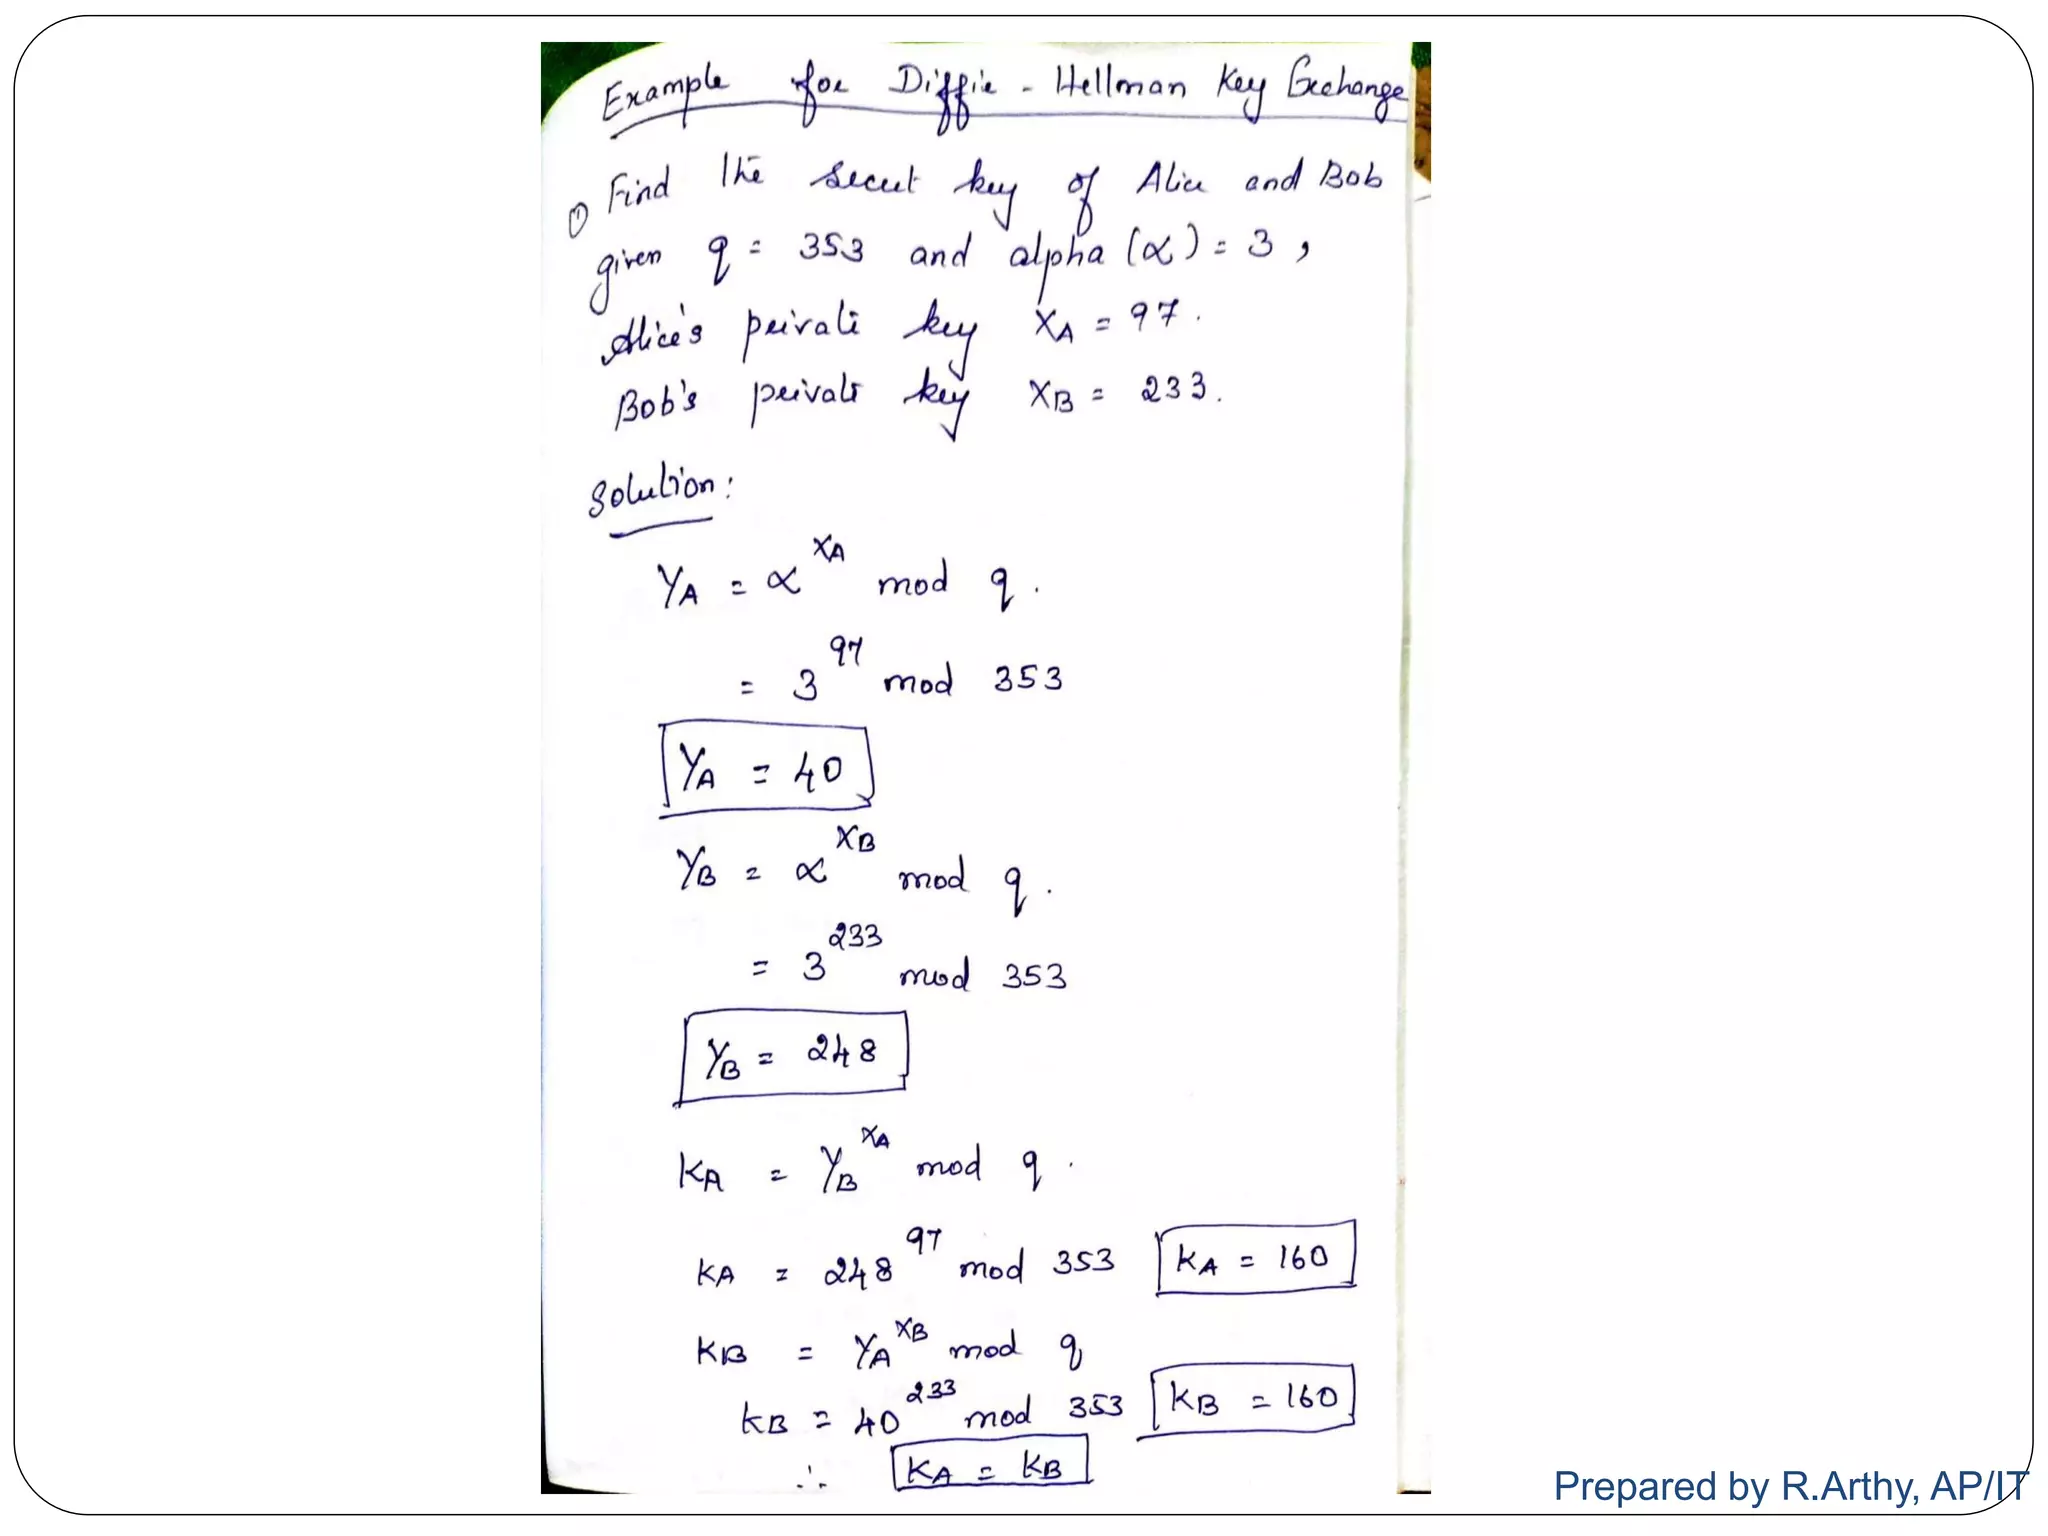 Example for Diffie - Hellman Key Exchange
① Find the secret key of Alice and Bob
given q = 353 and alpha (α) = 3 ,
Alice's private key XA = 97.
Bob's private key XB = 233.
Solution:
YA = α^XA mod q.
= 3^97 mod 353
YA = 40
YB = α^XB mod q.
= 3^233 mod 353
YB = 248
KA = YB^XA mod q.
KA = 248^97 mod 353 KA = 160
KB = YA^XB mod q
KB = 40^233 mod 353 KB = 160
∴ KA = KB
Prepared by R.Arthy, AP/IT